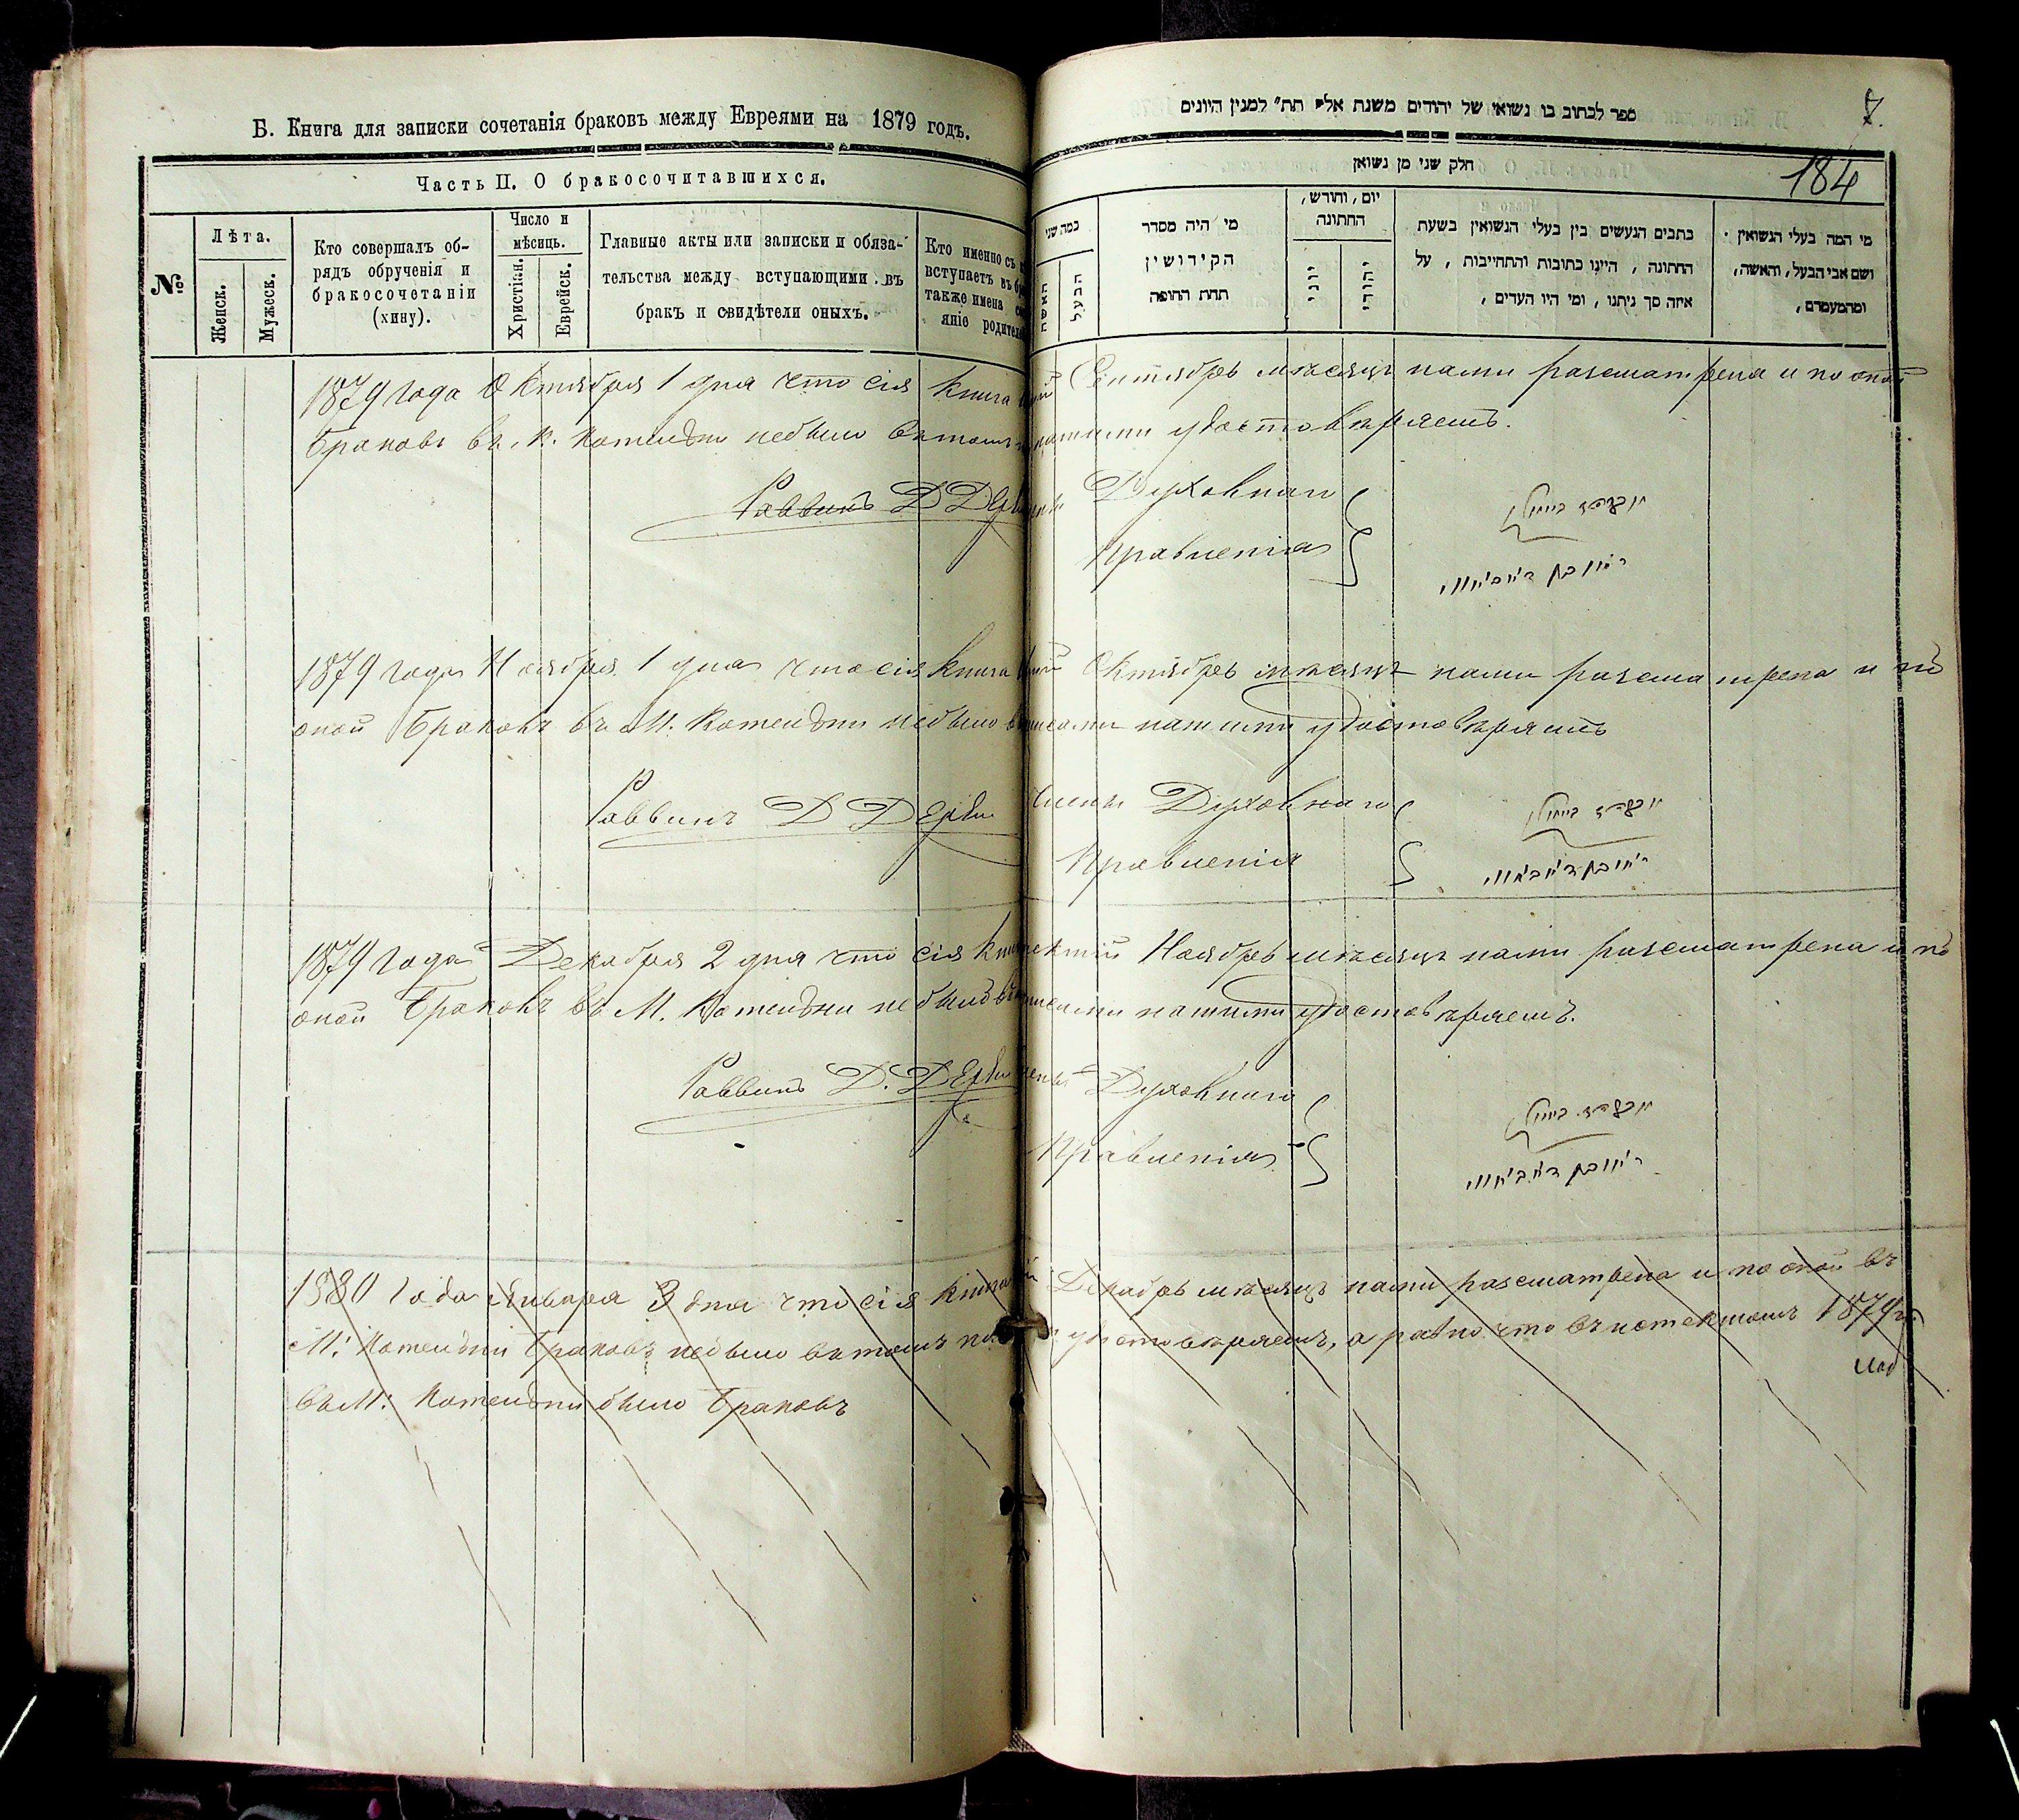 Б. Книга для записки сочетанія браковъ между Евреями на 1879 годъ.
Часть II. О бракосочитавшихся.
№
Лѣта.
Женск.
Мужеск.
Кто совершалъ об-
рядъ обрученія и
бракосочетаніи
(хину).
Число и
мѣсяць.
Христіан.
Еврейск.
Главные акты или записки и обяза-
тельства между вступающими въ
бракъ и свидѣтели оныхъ.
Кто именно съ
вступаетъ въ
также имена
яніе родител
ספר לכתוב בו נשואי של יהודים משנת אלף תת״ למנין היונים
7.
184
חלק שני מן נשואין
כמה שני
האשה
הבעל
מי היה מסדר
הקידושין
תחת החופה
יום, וחורש,
החתונה
יוני
יהודי
כתבים הנעשים בין בעלי הנשואין בשעת
החתונה, היינו כתובות והתחייבות, על
איזה סך ניתנו, ומי היו העדים,
מי המה בעלי הנשואין
ושם אבי הבעל, והאשה,
ומהמעמדם,
1879 года Октября 1 дня что сія книга Сентябрь мѣсяцъ нами разсматрена и по оной
Браковъ въ м. Котельни небыло въ томъ нашими удостовѣряемъ.
Раввинъ Д Духовнаго
Правленія
1879 года Ноября 1 дня что сія книга Октябрь мѣсяцъ нами разсматрена и по
оной Браковъ въ М. Котельни небыло нашими удостовѣряемъ
Раввинъ Д Члены Духовнаго
Правленія
1879 года Декабря 2 дня что сія Ноябрь мѣсяцъ нами разсматрена и по
оной Браковъ въ М. Котельни небыло нашими удостовѣряемъ.
Раввинъ Д. Духовнаго
Правленія
1880 года Января 3 дня что сія книга Декабрь мѣсяцъ нами разсматрена и по оной въ
М: Котельни Браковъ небыло въ томъ удостовѣряемъ, а равно что въ истекшомъ 1879
въ М: Котельни было Браковъ